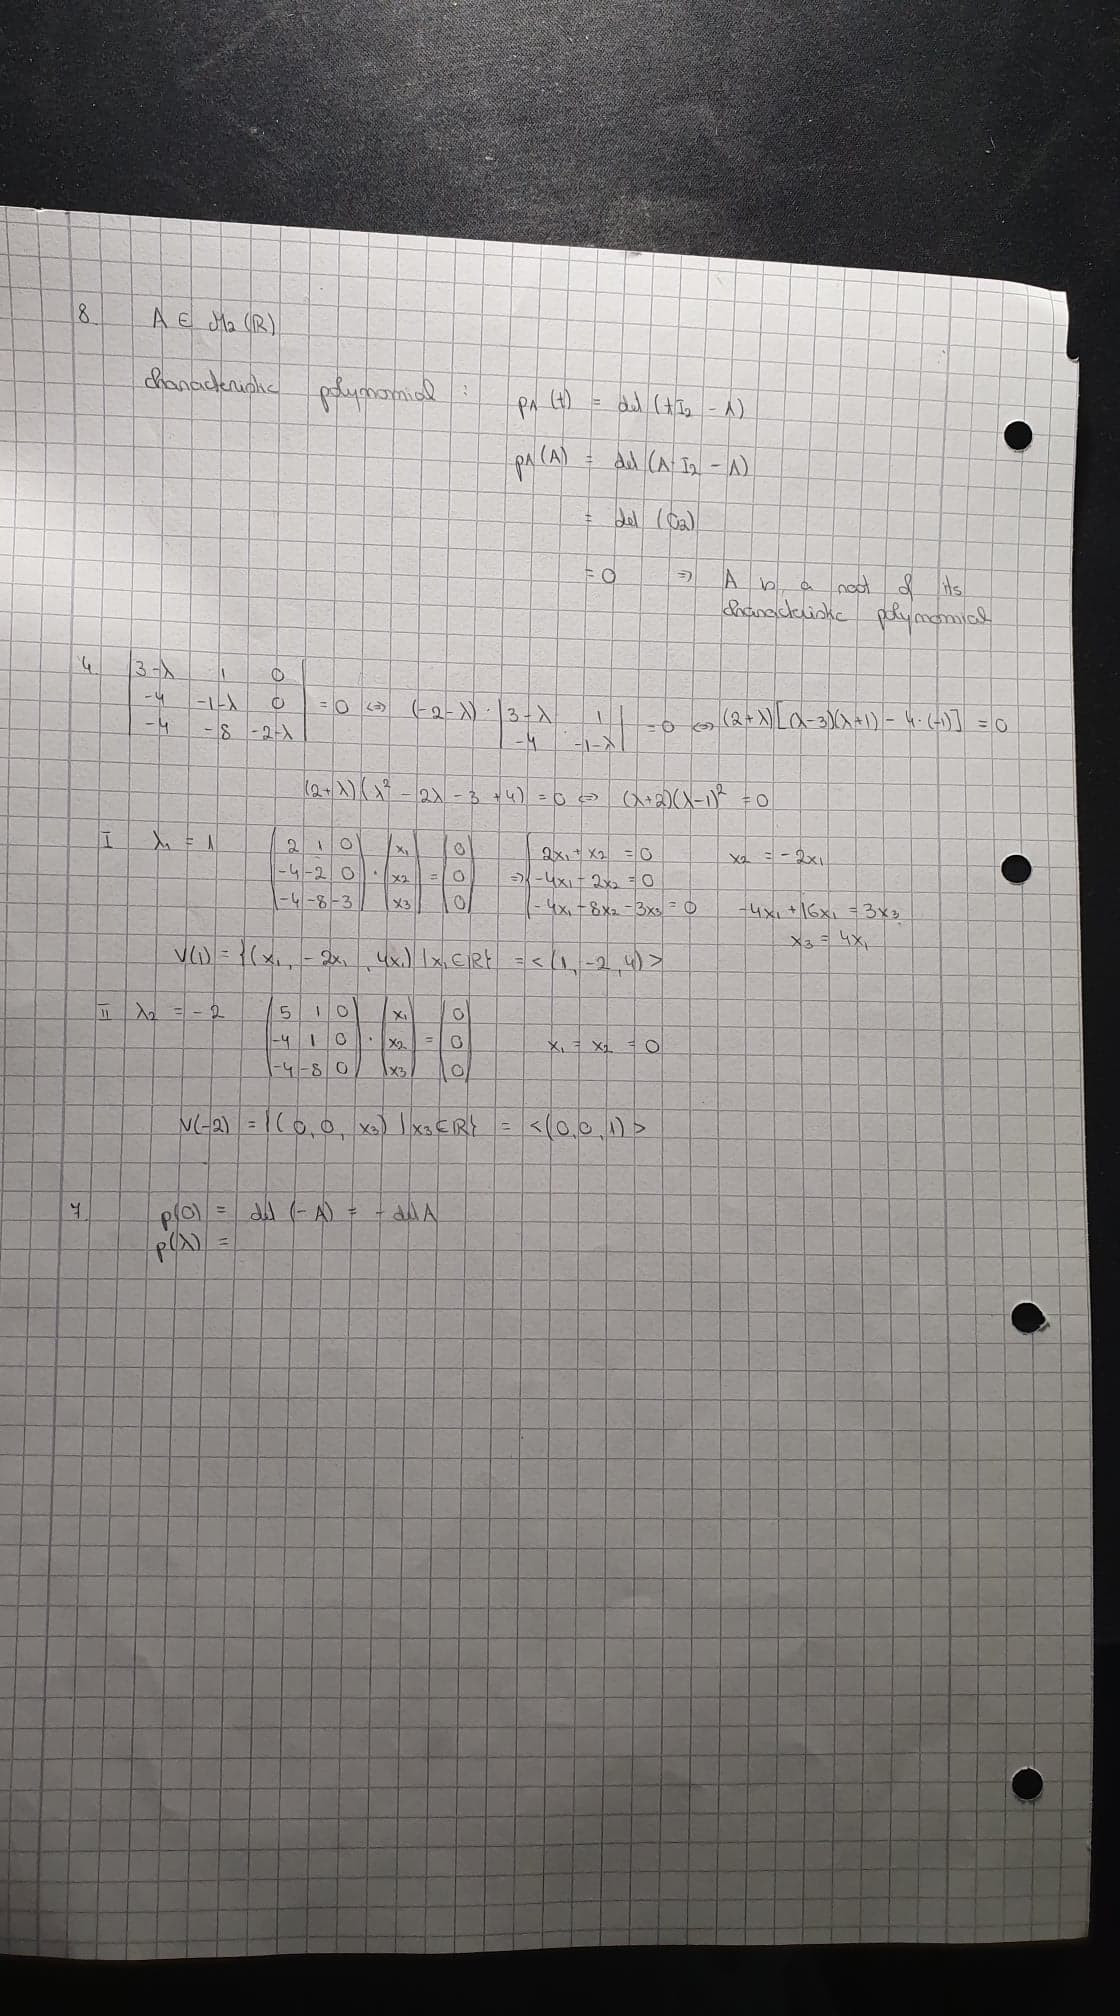 8. A ∈ M₂(ℝ)
characteristic polynomial : pA(t) = det (tI₂ - A)
pA(A) = det (A·I₂ - A)
= det (O₂)
= 0 ⇒ A is a root of its
characteristic polynomial
4. |3-λ 1 0|
|-4 -1-λ 0| = 0 ⇔ (-2-λ) · |3-λ 1| = 0 ⇔ (2+λ)[(λ-3)(λ+1) - 4·(-1)] = 0
|-4 -8 -2-λ| |-4 -1-λ|
(2+λ)(λ² - 2λ - 3 + 4) = 0 ⇔ (λ+2)(λ-1)² = 0
I λ₁ = 1 (2 1 0) (x₁) (0) 2x₁ + x₂ = 0 x₂ = -2x₁
(-4 -2 0) · (x₂) = (0) ⇒ -4x₁ - 2x₂ = 0
(-4 -8 -3) (x₃) (0) -4x₁ - 8x₂ - 3x₃ = 0 -4x₁ + 16x₁ = 3x₃
x₃ = 4x₁
V(1) = {(x₁, -2x₁, 4x₁) | x₁ ∈ ℝ} = <(1, -2, 4)>
II λ₂ = -2 (5 1 0) (x₁) (0)
(-4 1 0) · (x₂) = (0) x₁ = x₂ = 0
(-4 -8 0) (x₃) (0)
V(-2) = {(0, 0, x₃) | x₃ ∈ ℝ} = <(0, 0, 1)>
7. p(0) = det (-A) = - det A
p(λ) =